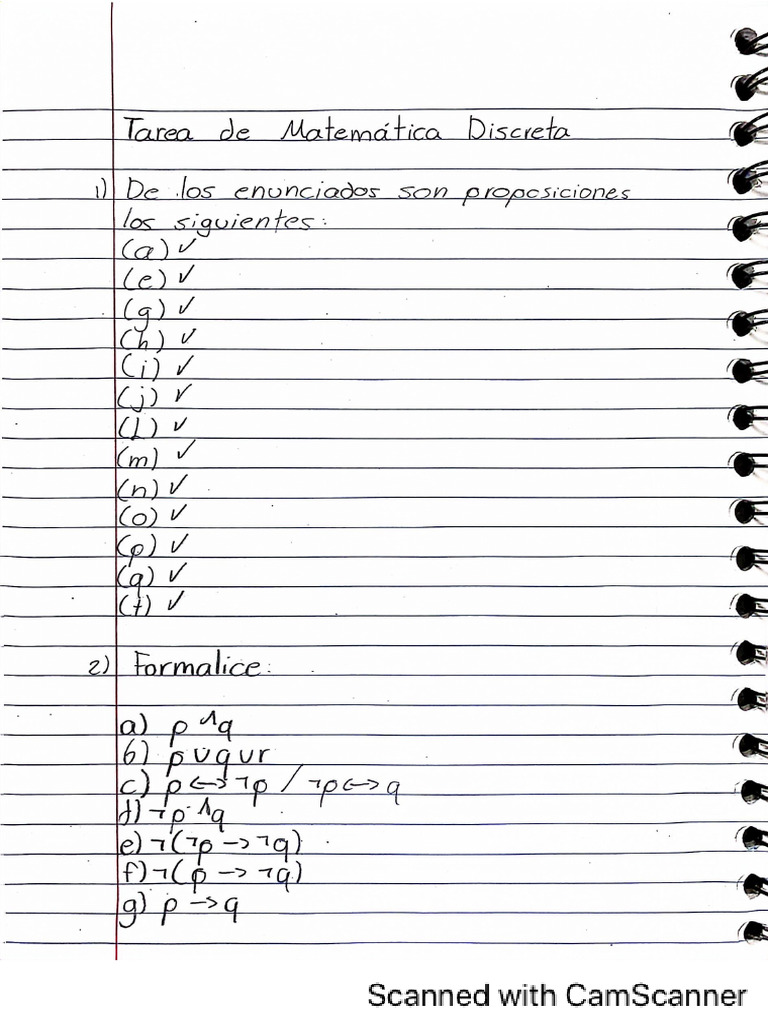 Tarea de Matemática Discreta
1) De los enunciados son proposiciones
los siguientes:
(a) ✓
(e) ✓
(g) ✓
(h) ✓
(i) ✓
(j) ✓
(l) ✓
(m) ✓
(n) ✓
(o) ✓
(p) ✓
(q) ✓
(t) ✓
2) Formalice:
a) p ∧ q
b) p ∪ q ∪ r
c) p ↔ ¬p / ¬p ↔ q
d) ¬p ∧ q
e) ¬(¬p → ¬q)
f) ¬(p → ¬q)
g) p → q
Scanned with CamScanner